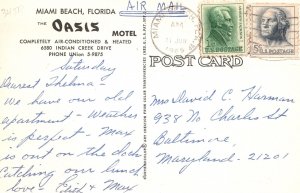 MIAMI BEACH, FLORIDA
AIR MAIL
THE OASIS MOTEL
COMPLETELY AIR-CONDITIONED & HEATED
6380 INDIAN CREEK DRIVE
PHONE UNION 5-9875
U.S. POSTAGE
5¢ U.S. POSTAGE
POST CARD
Saturday
Dearest Thelma -
We have our old
apartment - Weather
is perfect - Max
is out on the dock
Catching our lunch
love - & Max
Mrs David C. Harman
938 N. Charles St
Baltimore,
Maryland - 21201